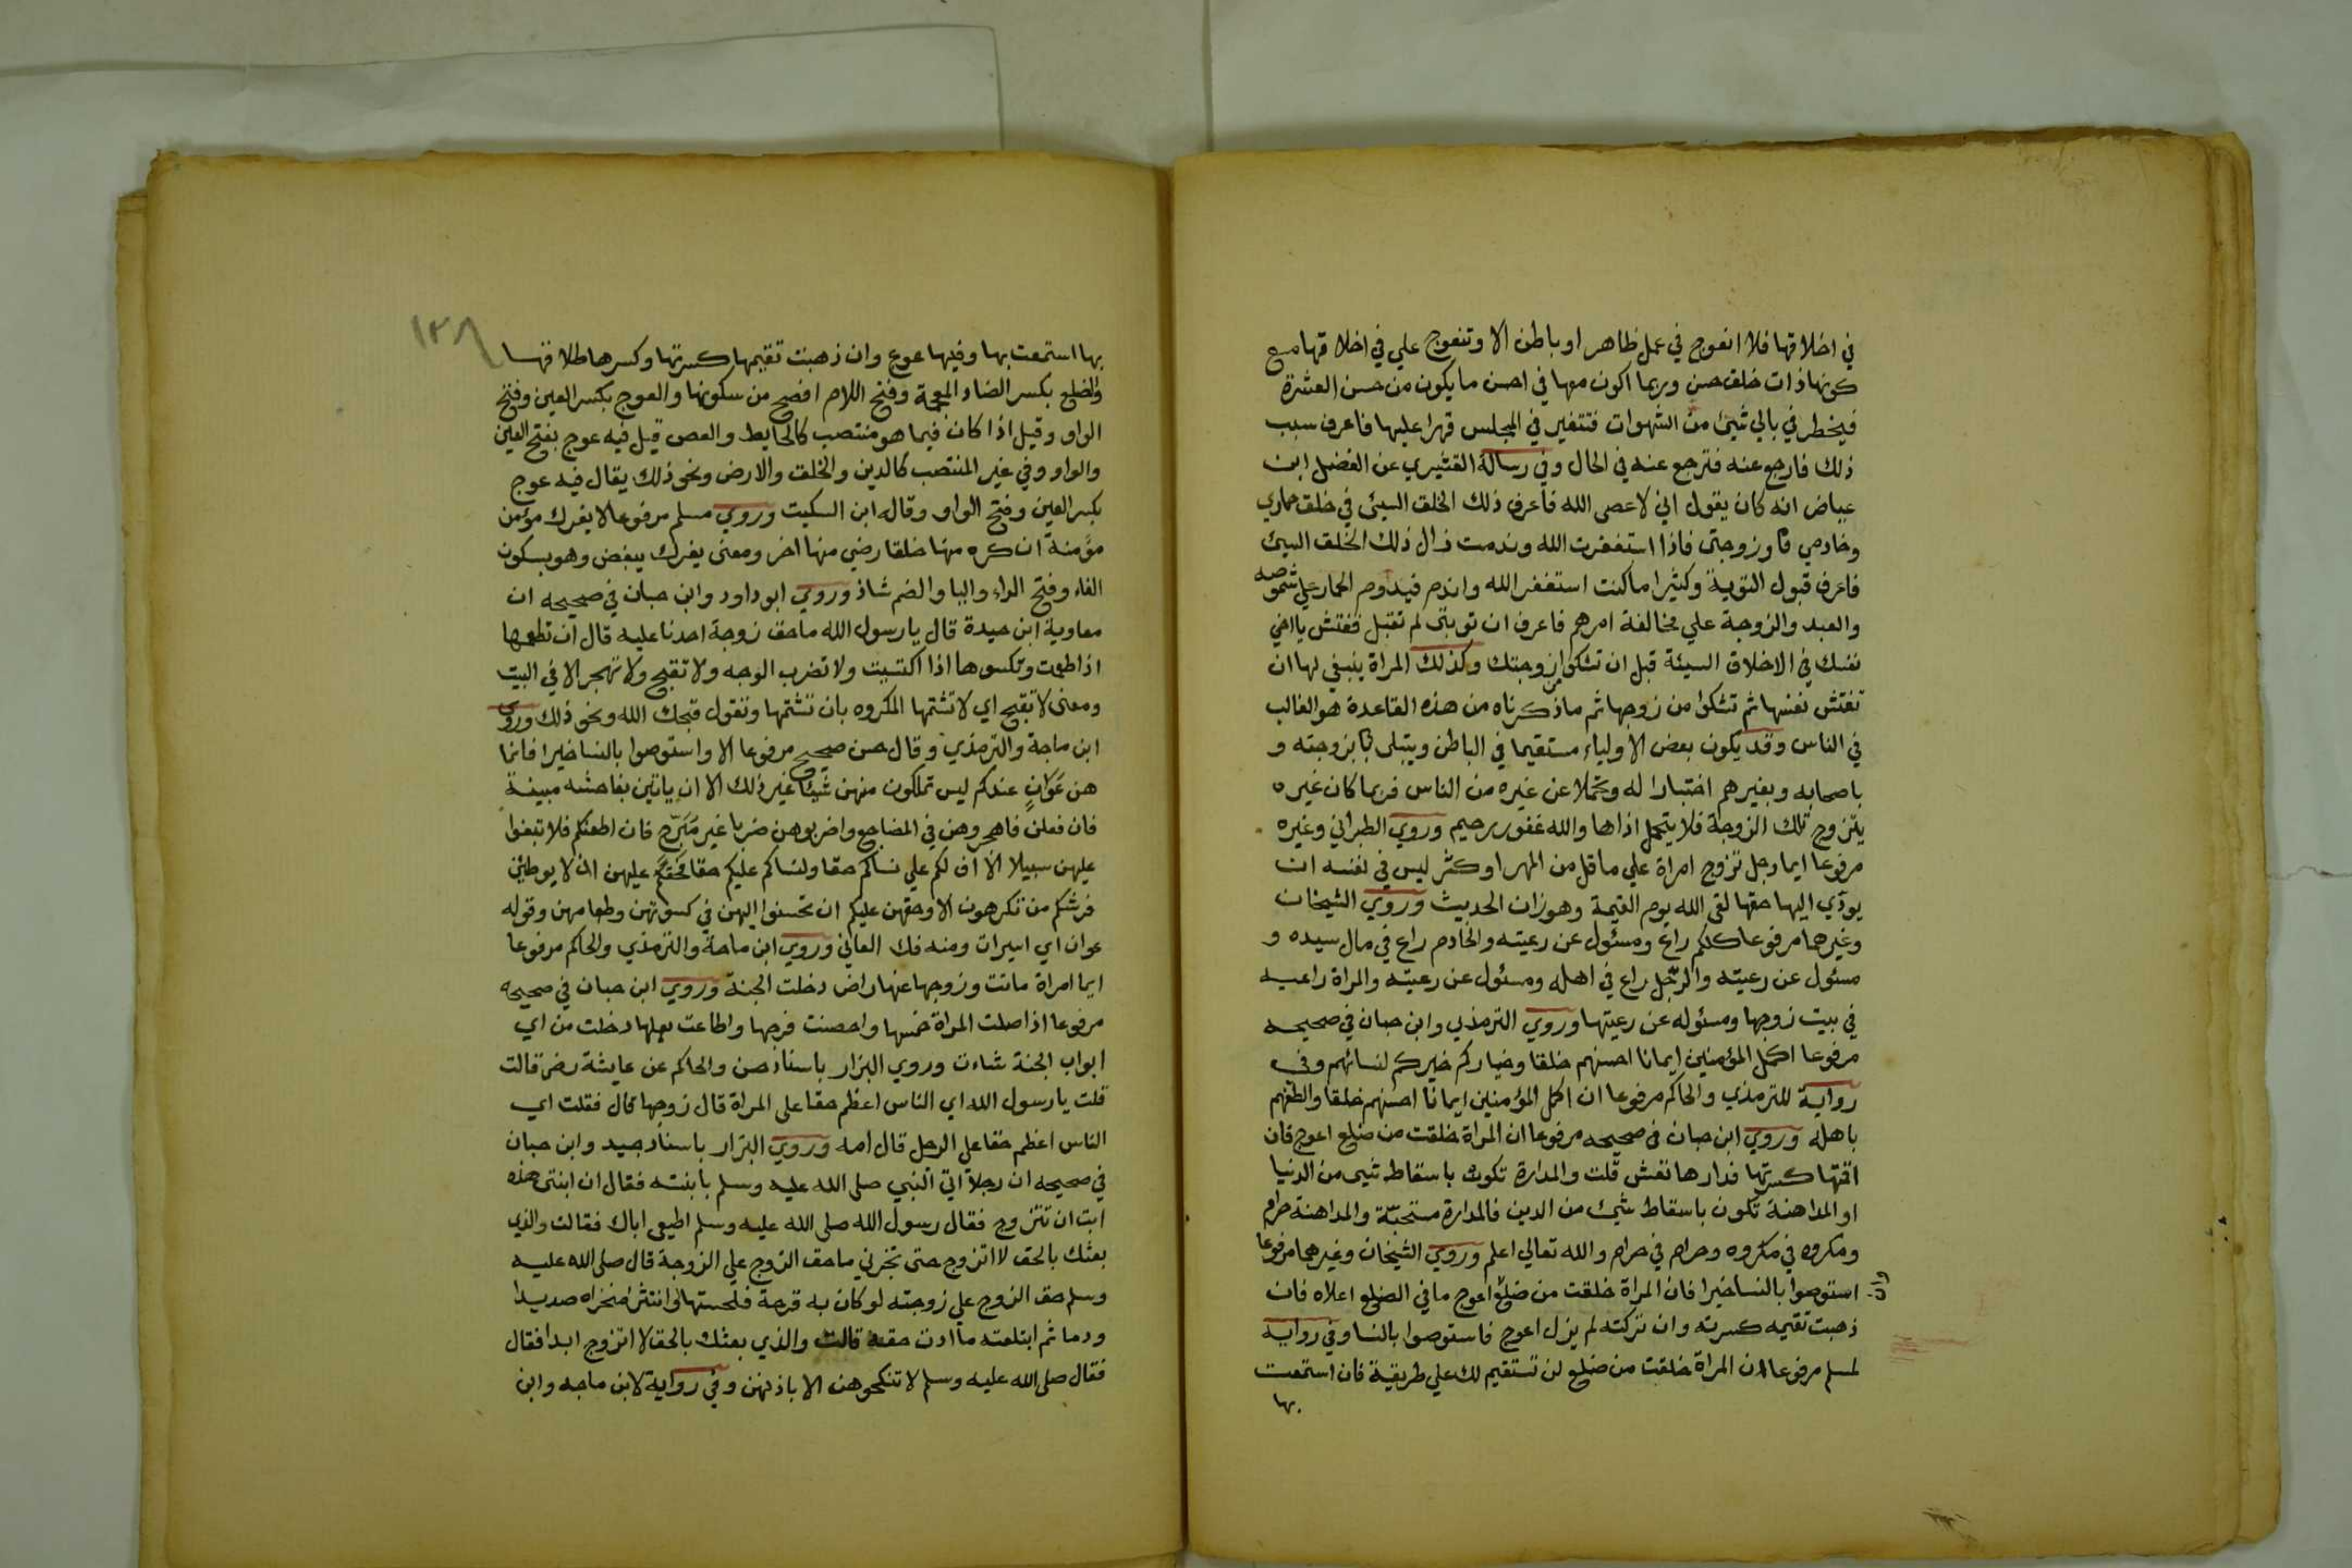 في اخلاقها فلا انعوج في عمل ظاهر او باطن الا وتنعوج علي في اخلاقها مع
كونها ذات خلق حسن وربما اكون معها في احسن ما يكون من حسن العشرة
فيخطر في بالي شيئ من الشهوات فتتغير في المجلس قهرا عليها فاعرف سبب
ذلك فارجع عنه فترجع عنه في الحال وفي رسالة القشيري عن الفضيل ابن
عياض انه كان يقول اني لاعصى الله فاعرف ذلك الخلق السيئ في خلق حماري
وخادمي وزوجتي فاذا استغفرت الله وندمت زال ذلك الخلق السيئ
فاعرف قبول التوبة وكثيرا ما كنت استغفر الله واندم فيدوم الحمار علي شموصه
والعبد والزوجة علي مخالفة امرهم فاعرف ان توبتي لم تقبل ففتش يا اخي
نفسك في الاخلاق السيئة قبل ان تشكو من زوجتك وكذلك المراة ينبغي لها ان
تفتش نفسها ثم تشكو من زوجها ثم ما ذكرناه من هذه القاعدة هو الغالب
في الناس وقد يكون بعض الاولياء مستقيما في الباطن ويبتلى بزوجته و
باصحابه وبغيرهم اختبارا له وتحملا عن غيره من الناس فربما كان غيره
يتزوج تلك الزوجة فلا يتحمل اذاها والله غفور رحيم وروي الطبراني وغيره
مرفوعا ايما رجل تزوج امراة علي ما قل من المهر او كثر ليس في نفسه ان
يودّي اليها حقها لقى الله يوم القيمة وهو زان الحديث وروي الشيخان
وغيرهما مرفوعا كلكم راع ومسئول عن رعيته والخادم راع في مال سيده و
مسئول عن رعيته والرجل راع في اهله ومسئول عن رعيته والمراة راعيه
في بيت زوجها ومسئوله عن رعيتها وروي الترمذي وابن حبان في صحيحه
مرفوعا اكمل المؤمنين ايمانا احسنهم خلقا وخياركم خيركم لنسائهم وفي
رواية للترمذي والحاكم مرفوعا ان اكمل المؤمنين ايمانا احسنهم خلقا والطفهم
باهله وروي ابن حبان في صحيحه مرفوعا ان المراة خلقت من ضلع اعوج فان
اقمتها كسرتها فدارها تعش قلت والمدارة تكون باسقاط شيى من الدنيا
او المداهنة تكون باسقاط شيئ من الدين فالمدارة مستحبّة والمداهنة حرام
ومكروه في مكروه وحرام في حرام والله تعالي اعلم وروي الشيخان وغيرهما مرفوعا
استوصوا بالنسا خيرا فان المراة خلقت من ضلع اعوج ما في الضلع اعلاه فان
وان
ذهبت تقيمه كسرته وان تركته لم يزل اعوج فاستوصوا بالنسا وفي رواية
لمسلم مرفوعا ان المراة خلقت من ضلع لن تستقيم لك علي طريقة فان استمتعت
بها
١٣٨
بها استمتعت بها وفيها عوج وان ذهبت تقيمها كسرتها وكسرها طلاقها
والضلع بكسر الضاد المعجمة وفتح اللام افصح من سكونها والعوج بكسر العين وفتح
الواو وقيل اذا كان فيما هو منتصب كالحايط والعصى قيل فيه عوج بفتح العين
والواو وفي غير المنتصب كالدين والخلق والارض ونحو ذلك يقال فيه عوج
بكسر العين وفتح الواو وقاله ابن السكيت وروي مسلم مرفوعا لا يفرك مؤمن
مؤمنة ان كره منها خلقا رضي منها اخر ومعنى يفرك يبغض وهو بسكون
الفاء وفتح الراء واليا والضم شاذ وروي ابو داود وابن حبان في صحيحه ان
معاوية ابن حيدة قال يا رسول الله ما حق زوجة احدنا عليه قال ان تطعمها
اذا طعمت وتكسوها اذا اكتسيت ولا تضرب الوجه ولا تقبح ولا تهجر الا في البيت
ومعنى لا تقبح اي لا تشتمها المكروه بان تشتمها وتقول قبحك الله ونحو ذلك وروي
ابن ماجة والترمذي وقال حسن صحيح مرفوعا الا واستوصوا بالنسا خيرا فانما
هن عَوانٍ عندكم ليس تملكون منهن شيئا غير ذلك الا ان ياتين بفاحشه مبينة
فان فعلن فاهجروهن في المضاجع واضربوهن ضربا غير مُبَرّح فان اطعنكم فلا تبغوا
عليهن سبيلا الا ان لكم علي نسائكم حقا ولنسائكم عليكم حقا فحقكم عليهن ان لا يوطين
فرشكم من تكرهون الا وحقهن عليكم ان تحسنوا اليهن في كسوتهن وطعامهن وقوله
عوان اي اسيرات ومنه فك العاني وروي ابن ماجة والترمذي والحاكم مرفوعا
ايما امراة ماتت وزوجها عنها راض دخلت الجنة وروي ابن حبان في صحيحه
مرفوعا اذا صلت المراة خمسها واحصنت فرجها واطاعت بعلها دخلت من اي
ابواب الجنة شاءت وروي البزار باسناد حسن والحاكم عن عايشة رض قالت
قلت يا رسول الله اي الناس اعظم حقا على المراة قال زوجها قال فقلت اي
الناس اعظم حقا على الرجل قال امه وروي البزار باسناد جيد وابن حبان
في صحيحه ان رجلا اتي النبي صلى الله عليه وسلم بابنته فقال ان ابنتى هذه
ابت ان تتزوج فقال رسول الله صلى الله عليه وسلم اطيعى اباك فقالت والذي
بعثك بالحق لا اتزوج حتى تخبرني ما حق الزوج علي الزوجة قال صلى الله عليه
وسلم حق الزوج علي زوجته لو كان به قرحة فلحستها او انتثر منخراه صديدا
ودما ثم ابتلعته ما ادت حقه قالت والذي بعثك بالحق لا اتزوج ابدا فقال
فقال صلى الله عليه وسلم لا تنكحوهن الا باذنهن وفي رواية لابن ماجه وابن